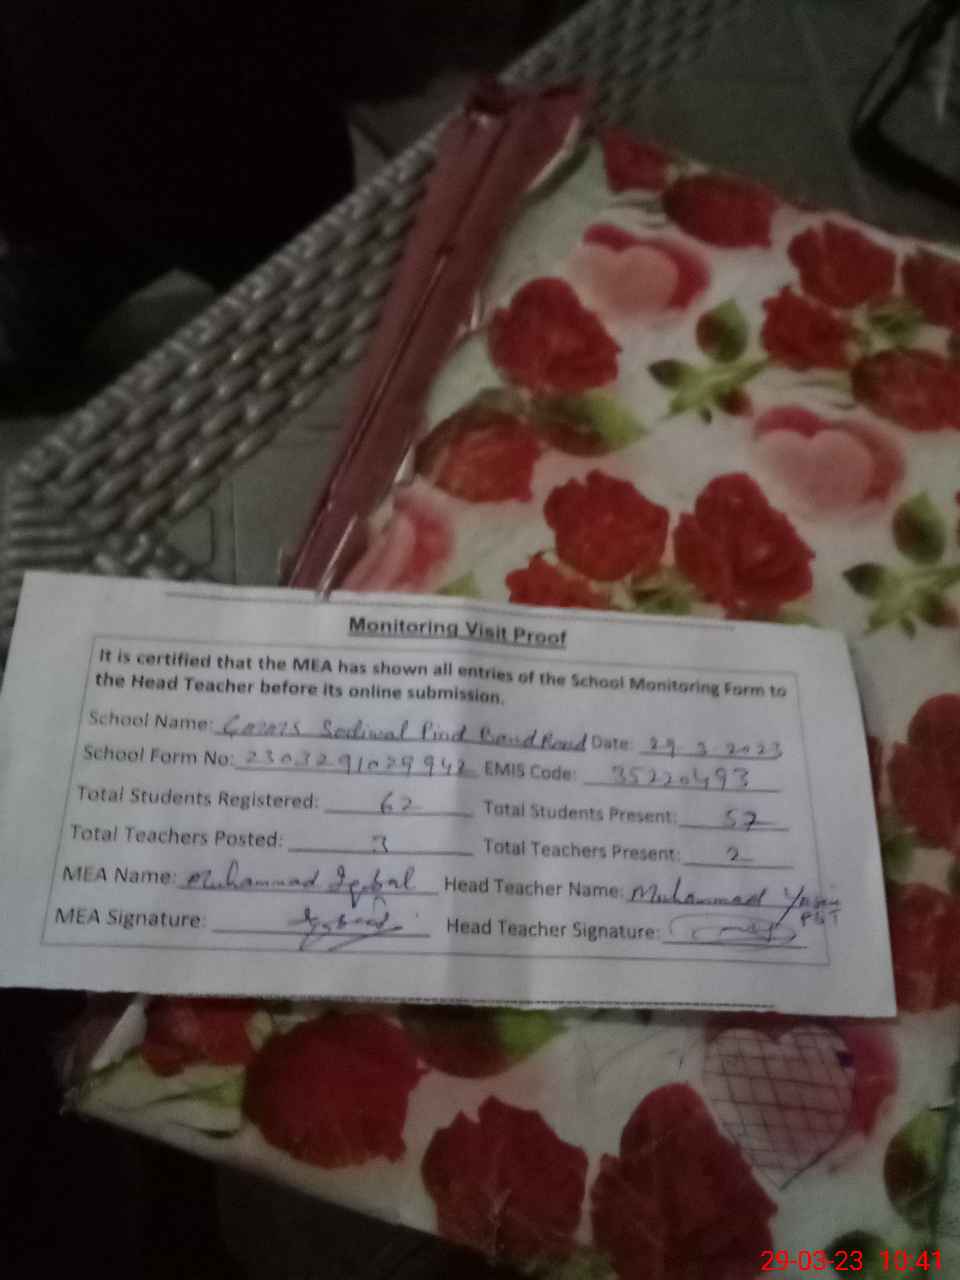 Monitoring Visit Proof
It is certified that the MEA has shown all entries of the School Monitoring Form to
the Head Teacher before its online submission.
School Name: Sodiwal Pind Band Road Date: 29.3.2023
School Form No: 2303291029942 EMIS Code: 35220493
Total Students Registered: 62 Total Students Present: 57
Total Teachers Posted: 3 Total Teachers Present: 2
MEA Name: Muhammad Iqbal Head Teacher Name: Muhammad Yasin
PST
MEA Signature: Head Teacher Signature:
29-03-23 10:41